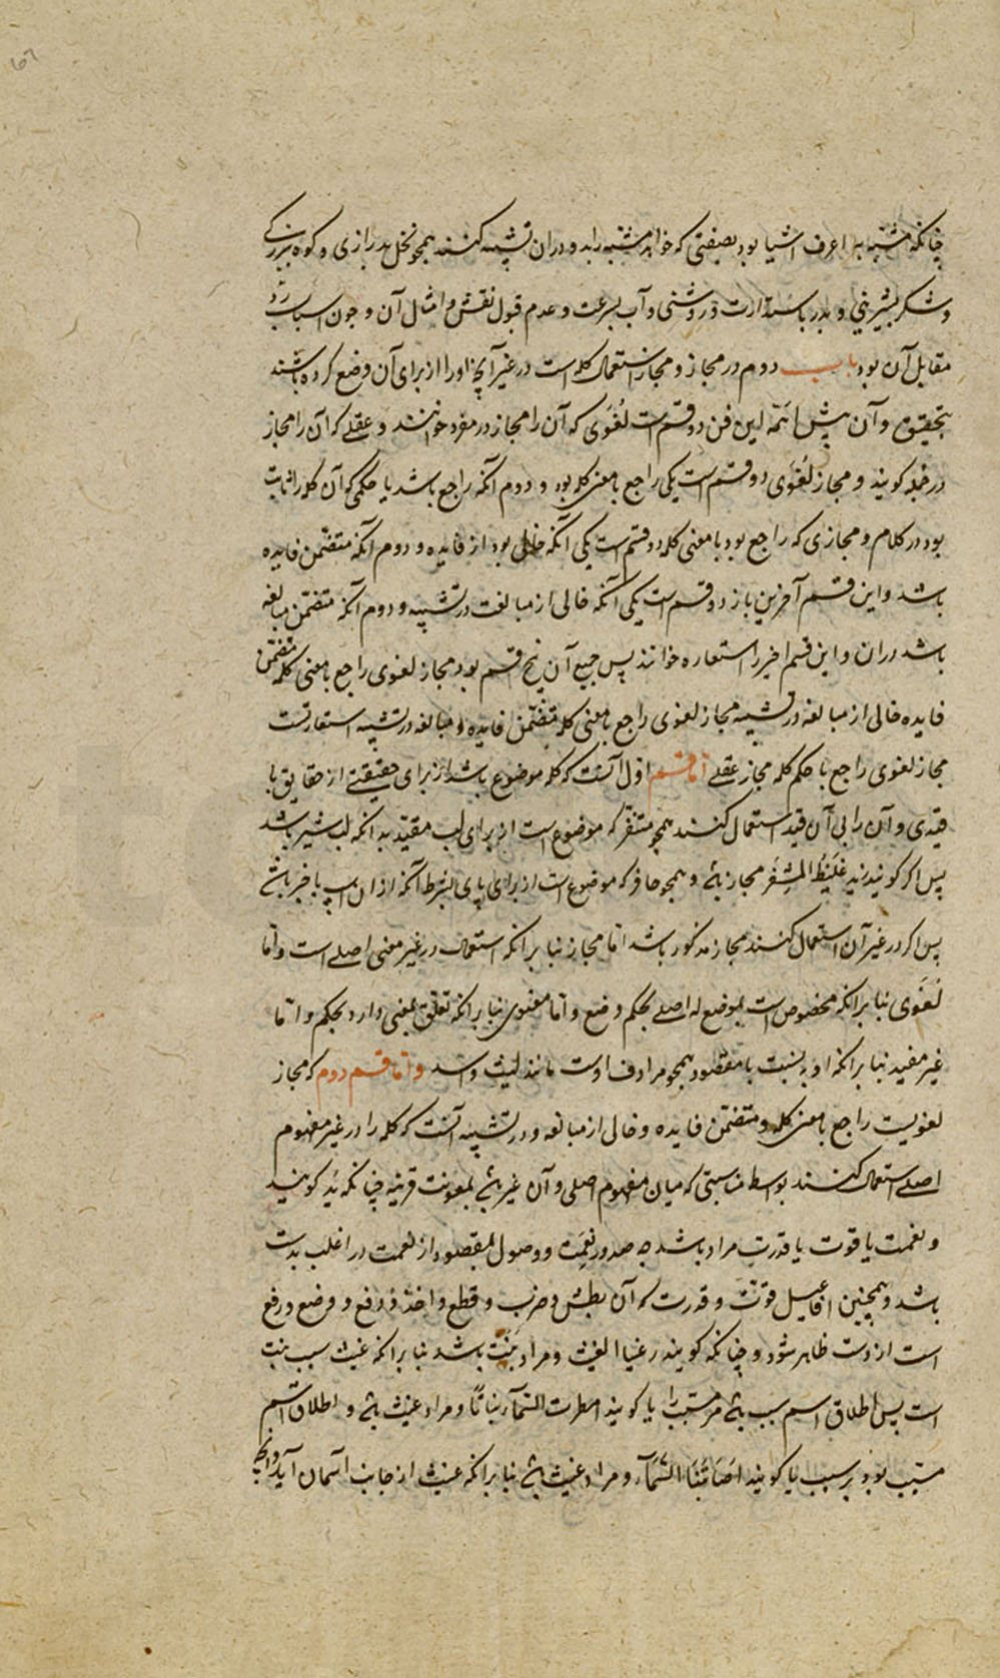 چنانکه مشبه به اعرف اشیا بود بصفتی که خواهد مشبه را بدو دران تشبیه کنند همچو نخل بدرازی و کوه ببزرگی
و شکر بشیرینی و بدر باستدارت و روشنی و آب بسرعت و عدم قبول نقش و امثال آن و چون اسباب رد
مقابل آن بود باب دوم در مجاز و مجاز استعمال کلمه است در غیر آنچه او را از برای آن وضع کرده باشند
بتحقیق و آن پیش ائمه این فن دو قسم است لُغَوی که آن را مجاز در مفرد خوانند و عقلے که آن را مجاز
در جمله گویند و مجاز لُغَوی دو قسم است یکی راجع با معنی کلمه بود و دوم آنکه راجع باشد با حکمی که آن کلمه را ثابت
بود در کلام و مجازی که راجع بود با معنی کلمه دو قسم است یکی آنکه خالی بود از فایده و دوم آنکه متضمن فایده
باشد و این قسم آخرین باز دو قسم است یکی آنکه خالی از مبالغت در تشبیه و دوم آنکه متضمن مبالغه
باشد دران و این قسم اخیر را استعاره خوانند پس جمیع آن پنج قسم بود مجاز لغوی راجع با معنی کلمه متضمن
فایده خالی از مبالغه در تشبیه مجاز لغوی راجع با معنی کلمه متضمن فایده و مبالغه در تشبیه استعارتست
مجاز لغوی راجع با حکم کلمه مجاز عقلے اما قسم اول آنست که کلمه موضوع باشد از برای حقیقتے از حقایق با
قیدی و آن را بی آن قید استعمال کنند همچو مشفر که موضوع است از برای لب مقید به آنکه لب شتر باشد
پس اگر گویند زید غَلیظُ المِشفَر مجاز باشد و همچو حافر که موضوع است از برای پای بشرط آنکه از ان اسپ یا خر باشد
پس اگر در غیر آن استعمال کنند مجاز مذکور باشد اما مجاز بنا بر آنکه استعمال در غیر معنی اصلے است و اما
لُغَوی بنا بر آنکه مخصوص است بموضع له اصلے بحکم وضع و اما معنوی بنا بر آنکه تعلق بمعنی دارد نه بحکم و اما
غیر مفید بنا بر آنکه او به نسبت با مقصود همچو مرادف اوست مانند لیث و اسد و اما قسم دوم که مجاز
لغویست راجع با معنی کلمه و متضمن فایده و خالی از مبالغه و در تشبیه آنست که کلمه را در غیر مفهوم
اصلے استعمال کنند بواسطه مناسبتی که میان مفهوم اصلی و آن غیر باشد بمعونت قرینه چنانکه ید گویند
و نعمت یا قوت یا قدرت مراد باشد چه صدور نعمت و وصول بمقصود از نعمت در اغلب بدست
باشد و همچنین افاعیل قوت و قدرت که آن بطش و ضرب و قطع و اخذ و دفع و وضع و رفع
است از دست ظاهر شود و چنانکه گویند رعینا الغیث و مراد نَبت باشد بنا بر آنکه غیث سبب نبت
است پس اطلاق اسم سبب باشد مر مسبب را یا گویند امطرت السّمآء نباتًا و مراد غیث باشد و اطلاق اسم
مسبب بود بر سبب یا گویند اَصَابَتنَا السّمَآء و مراد غیث باشد بنا بر آنکه غیث از جانب آسمان آید و آنچه